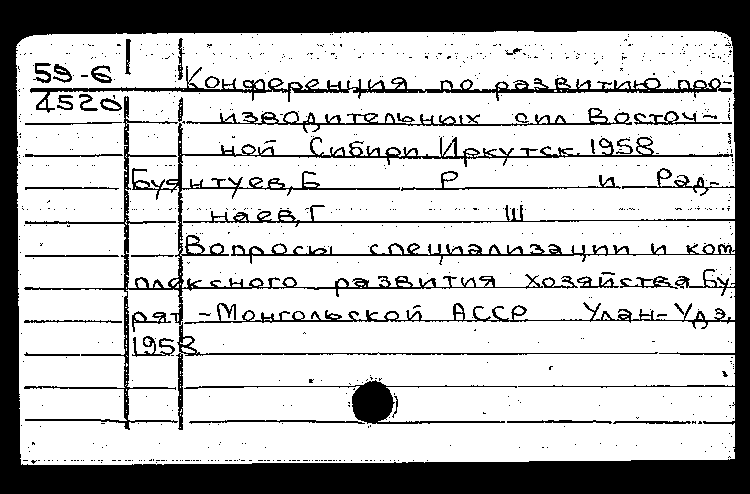 59-6 Конференция по развитию про-
4520 изводительных сил Восточ-
ной Сибири. Иркутск. 1958
Буянтуев, Б Р и Рад-
наев, Г Ш
Вопросы специализации и ком
плексного развития хозяйства Бу-
рят-Монгольской АССР Улан-Удэ,
1958